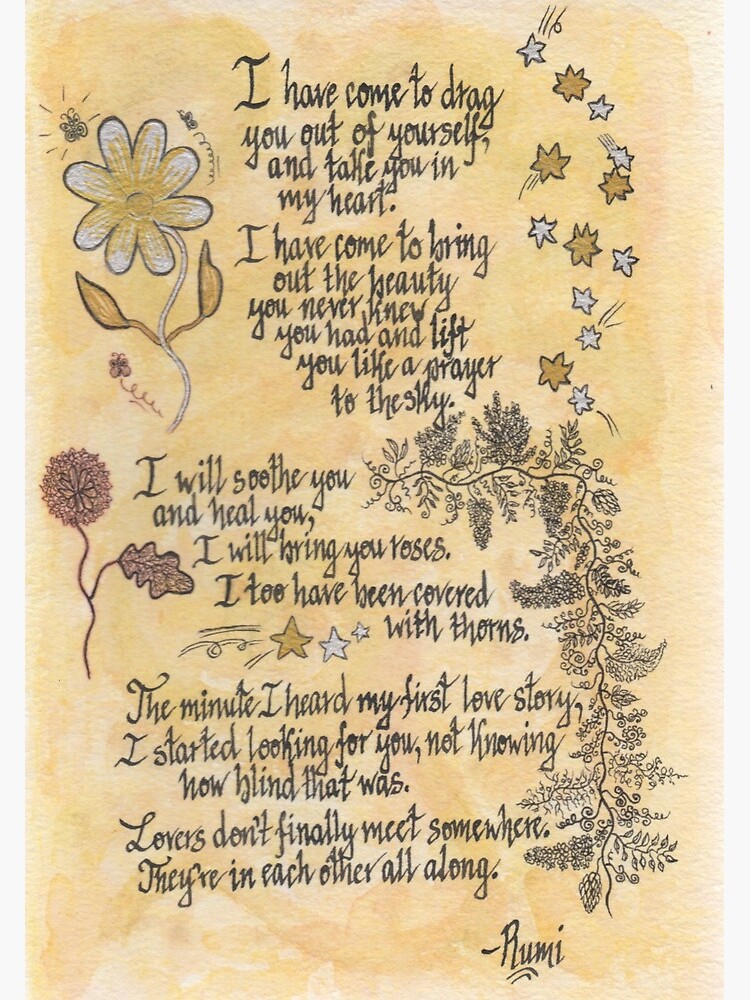 I have come to drag
you out of yourself,
and take you in
my heart.
I have come to bring
out the beauty
you never knew
you had and lift
you like a prayer
to the sky.
I will soothe you
and heal you,
I will bring you roses.
I too have been covered
with thorns.
The minute I heard my first love story,
I started looking for you, not knowing
how blind that was.
Lovers don't finally meet somewhere.
They're in each other all along.
-Rumi